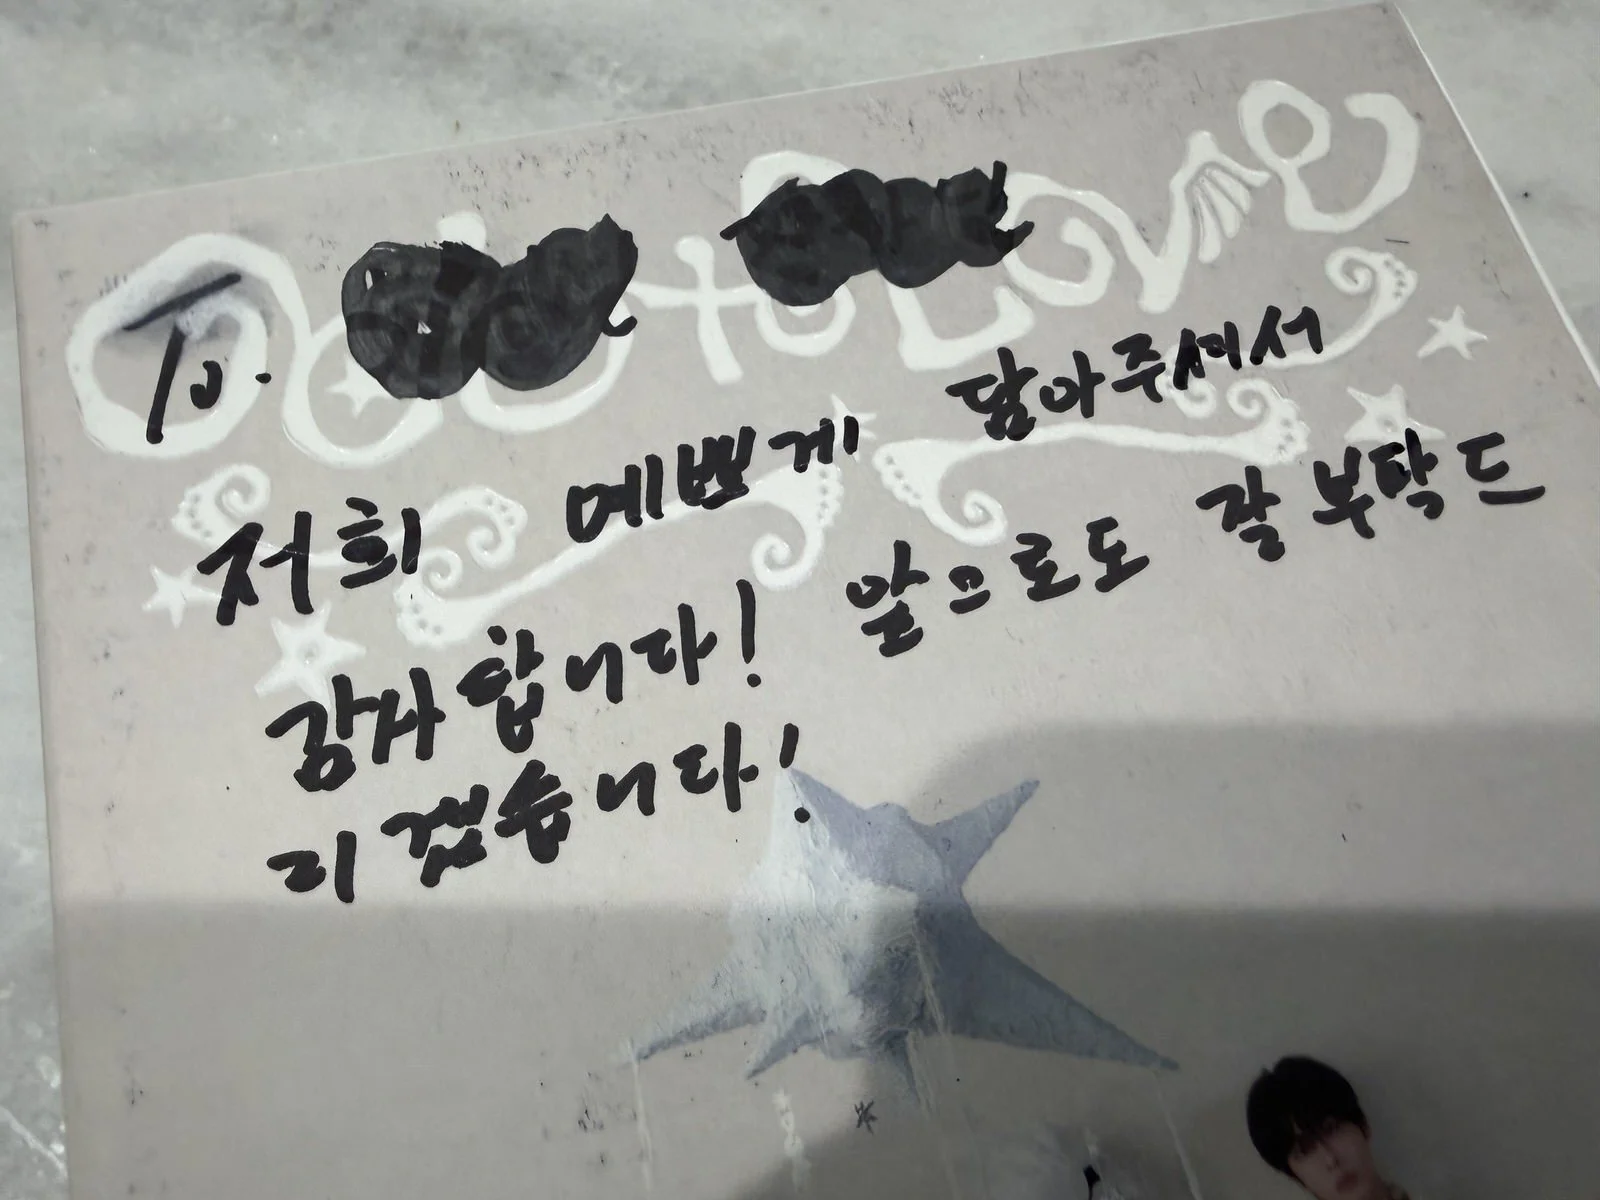 To.
저희 예쁘게 담아주셔서
감사합니다! 앞으로도 잘 부탁드
리겠습니다!